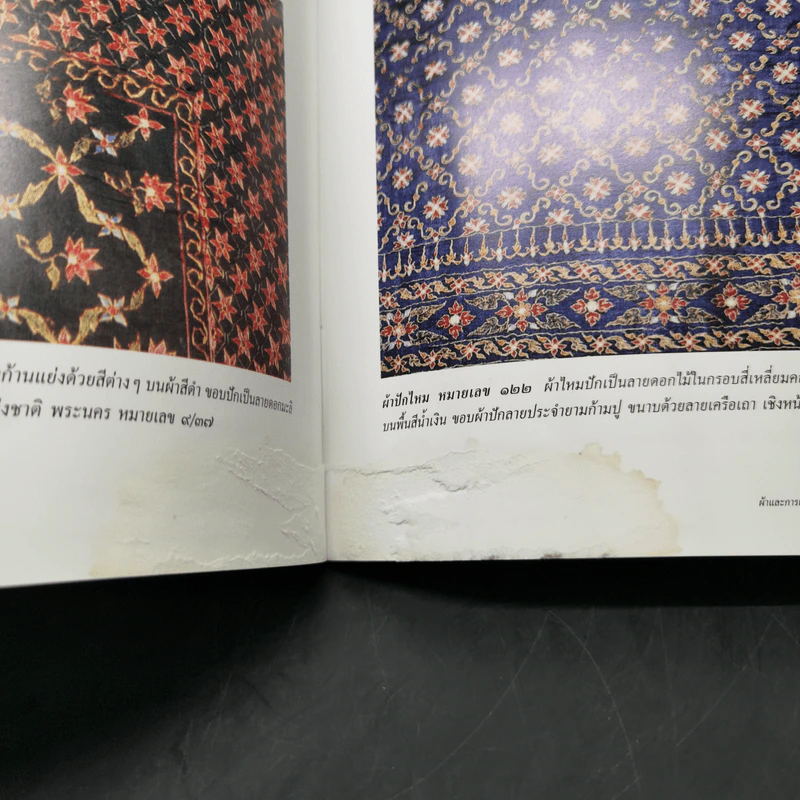 ก้านแย่งด้วยสีต่างๆ บนผ้าสีดำ ขอบปักเป็นลายดอกมะลิ
งชาติ พระนคร หมายเลข ๙/๓๗
ผ้าปักไหม หมายเลข ๑๒๒ ผ้าไหมปักเป็นลายดอกไม้ในกรอบสี่เหลี่ยม
บนพื้นสีน้ำเงิน ขอบผ้าปักลายประจำยามก้ามปู ขนาบด้วยลายเครือเถา เชิง
ผ้าและการ